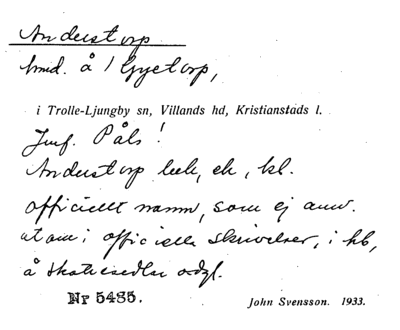 Anderstorp
hmd. å 1 Gyetorp,
i Trolle-Ljungby sn, Villands hd, Kristianstads l.
Jmf. Påls!
Anderstorp bek, ek, kl.
officiellt namn, som ej anv.
utom i officiella skrivelser, i kb,
å skattsedlar ordgl.
Nr 5485.
John Svensson. 1933.